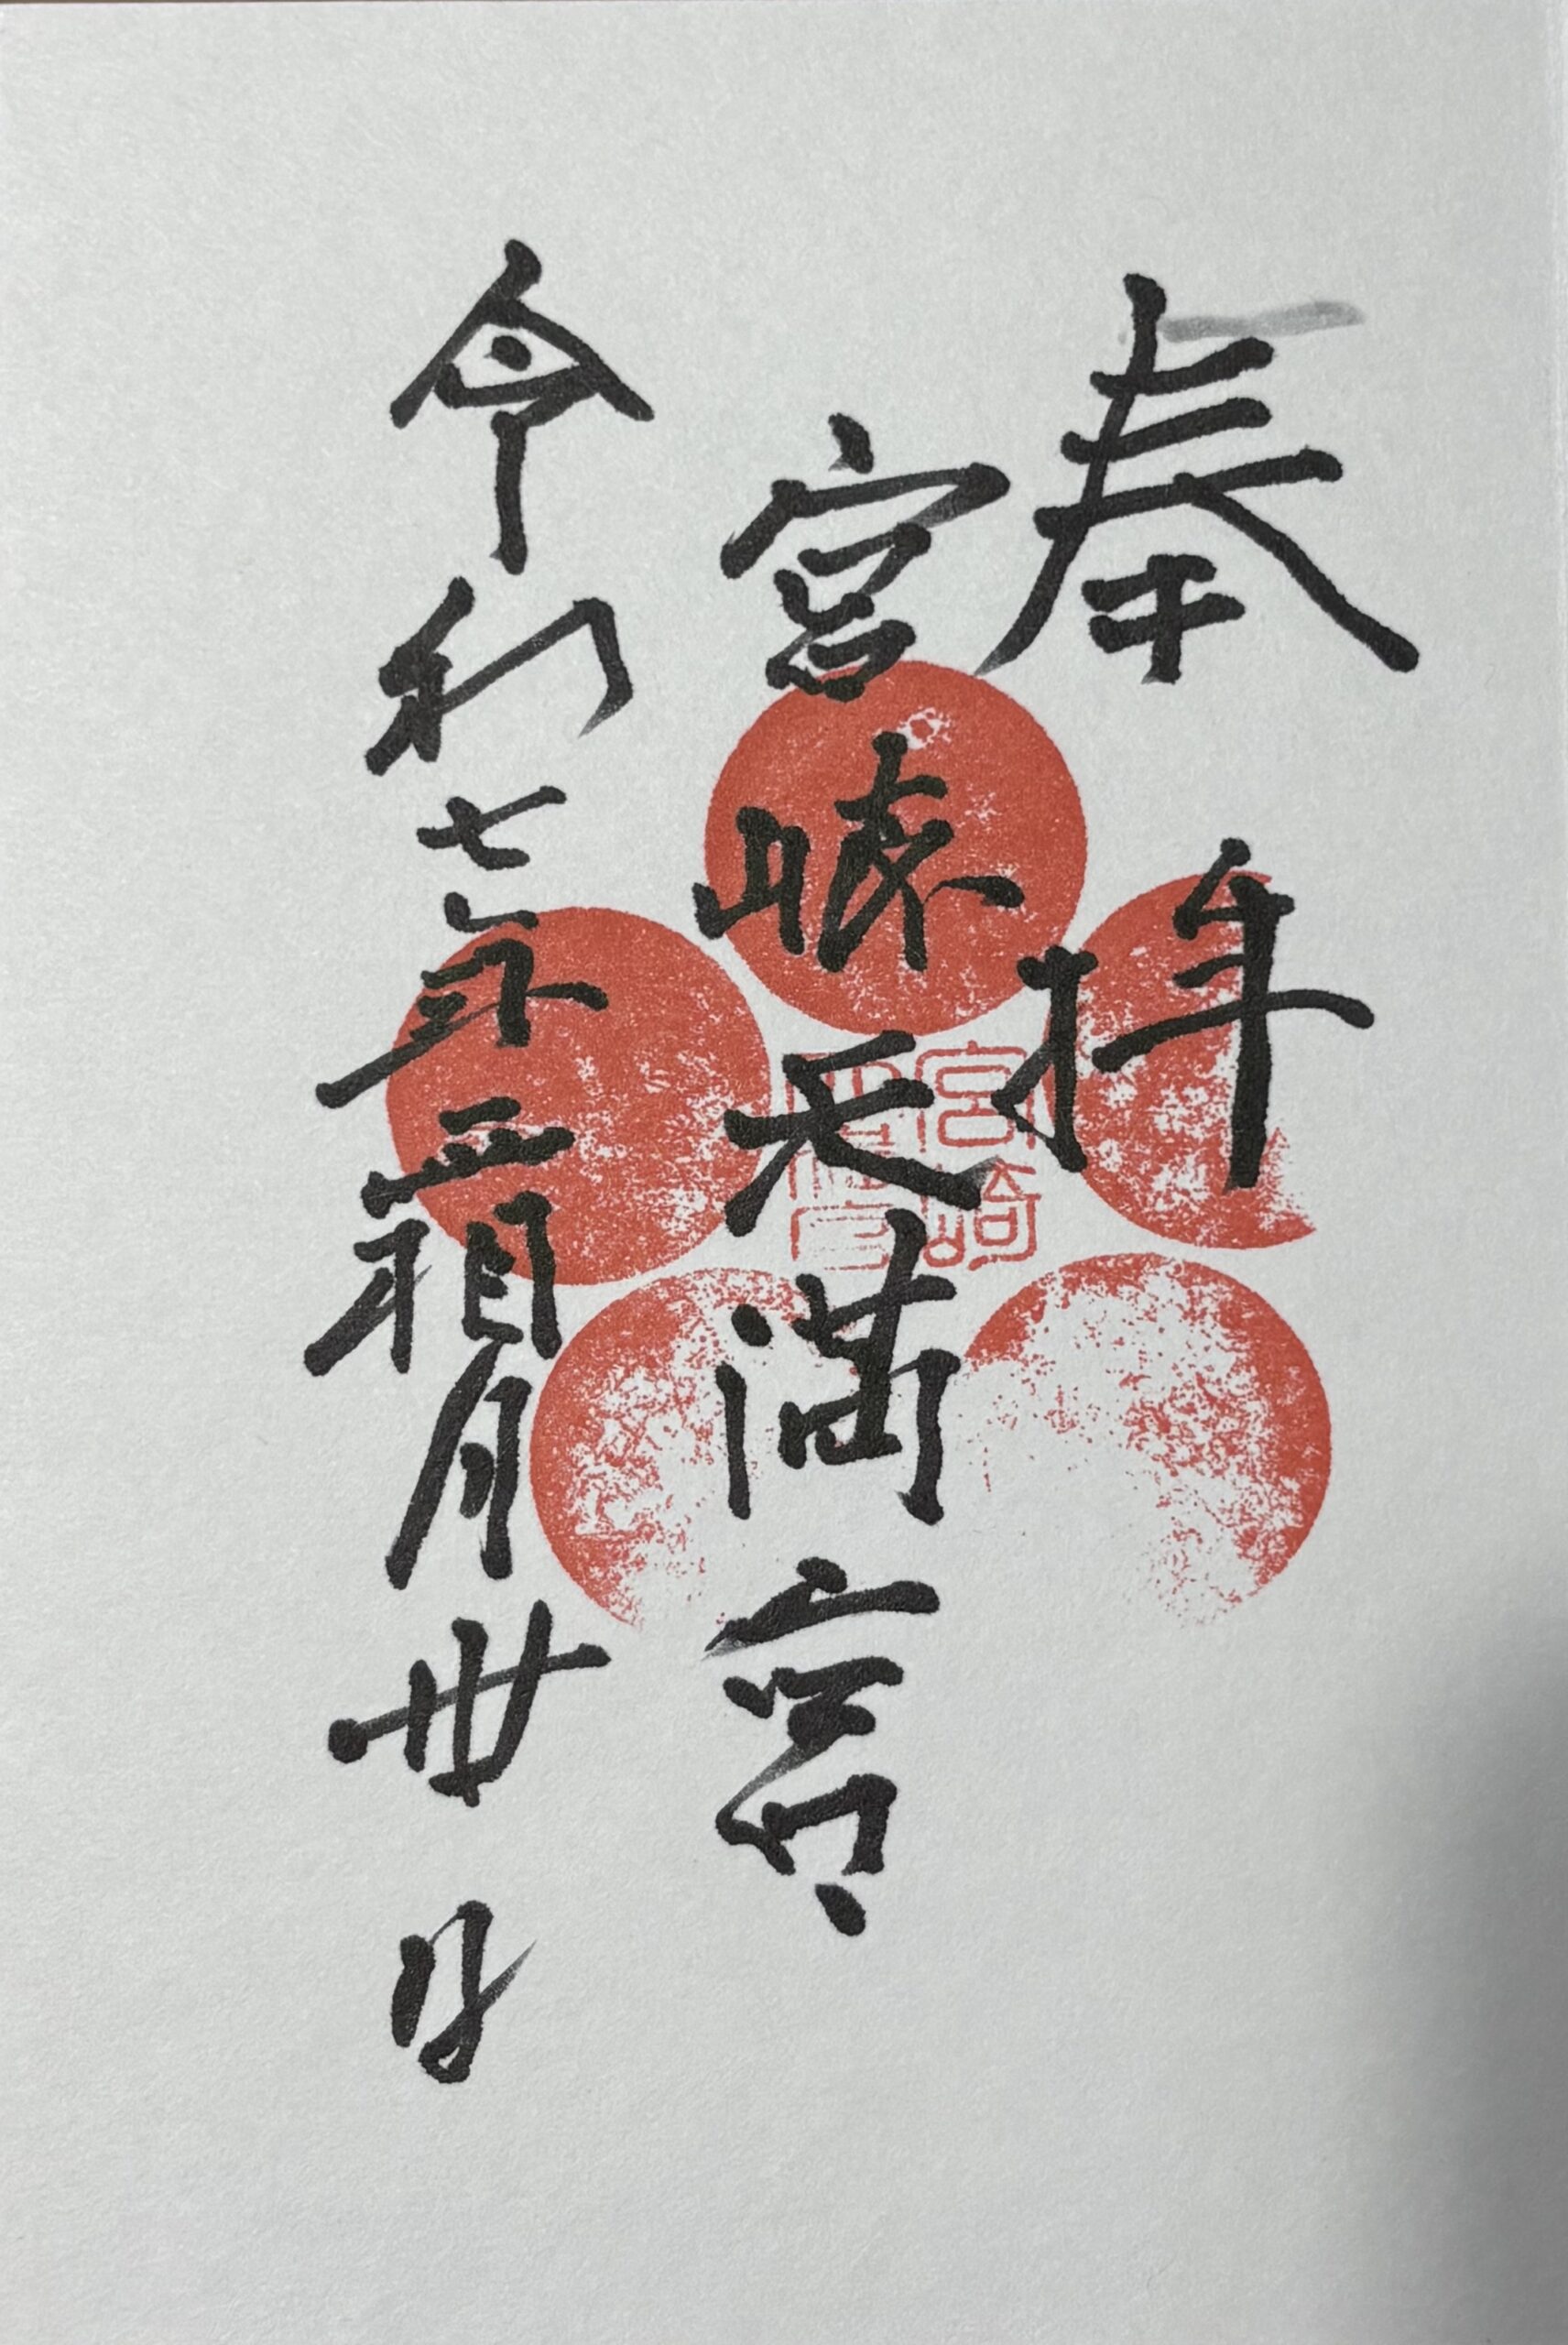 奉拝
宮崎天満宮
令和七年霜月卅日
宮崎